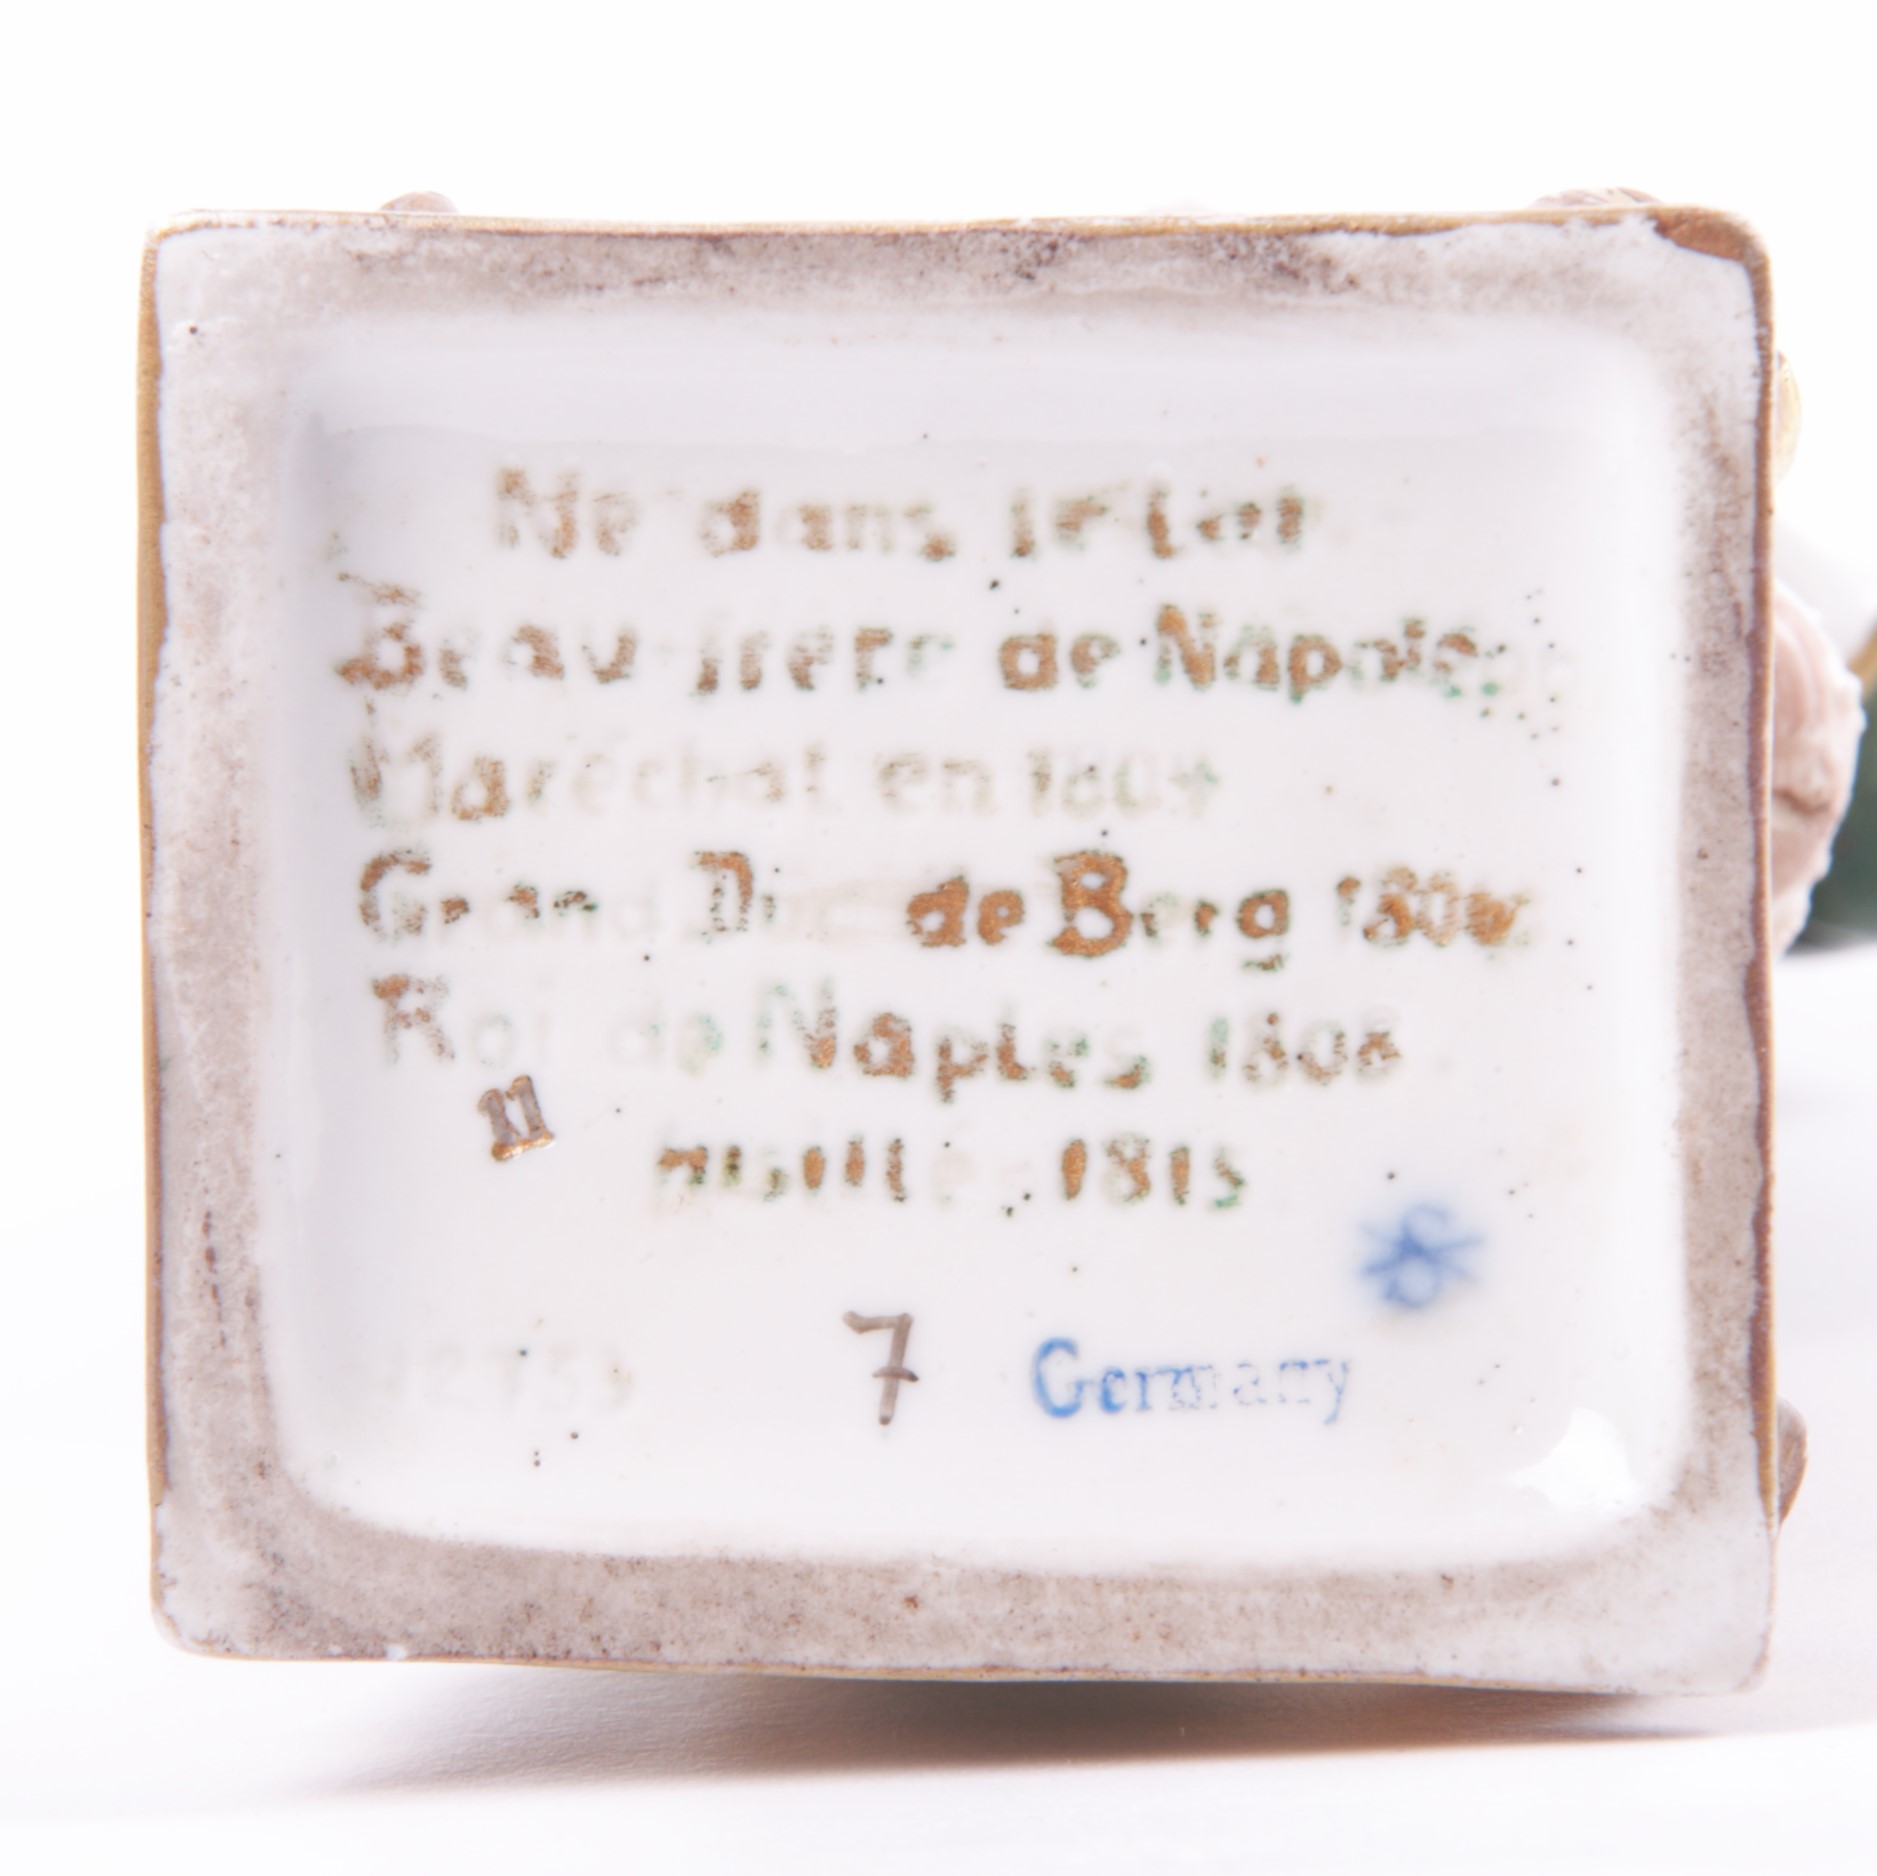 Né dans le Lot
Beau-frère de Napoléon
Maréchal en 1804
Grand Duc de Berg 1806
Roi de Naples 1808
11
fusillé 1815
7 Germany